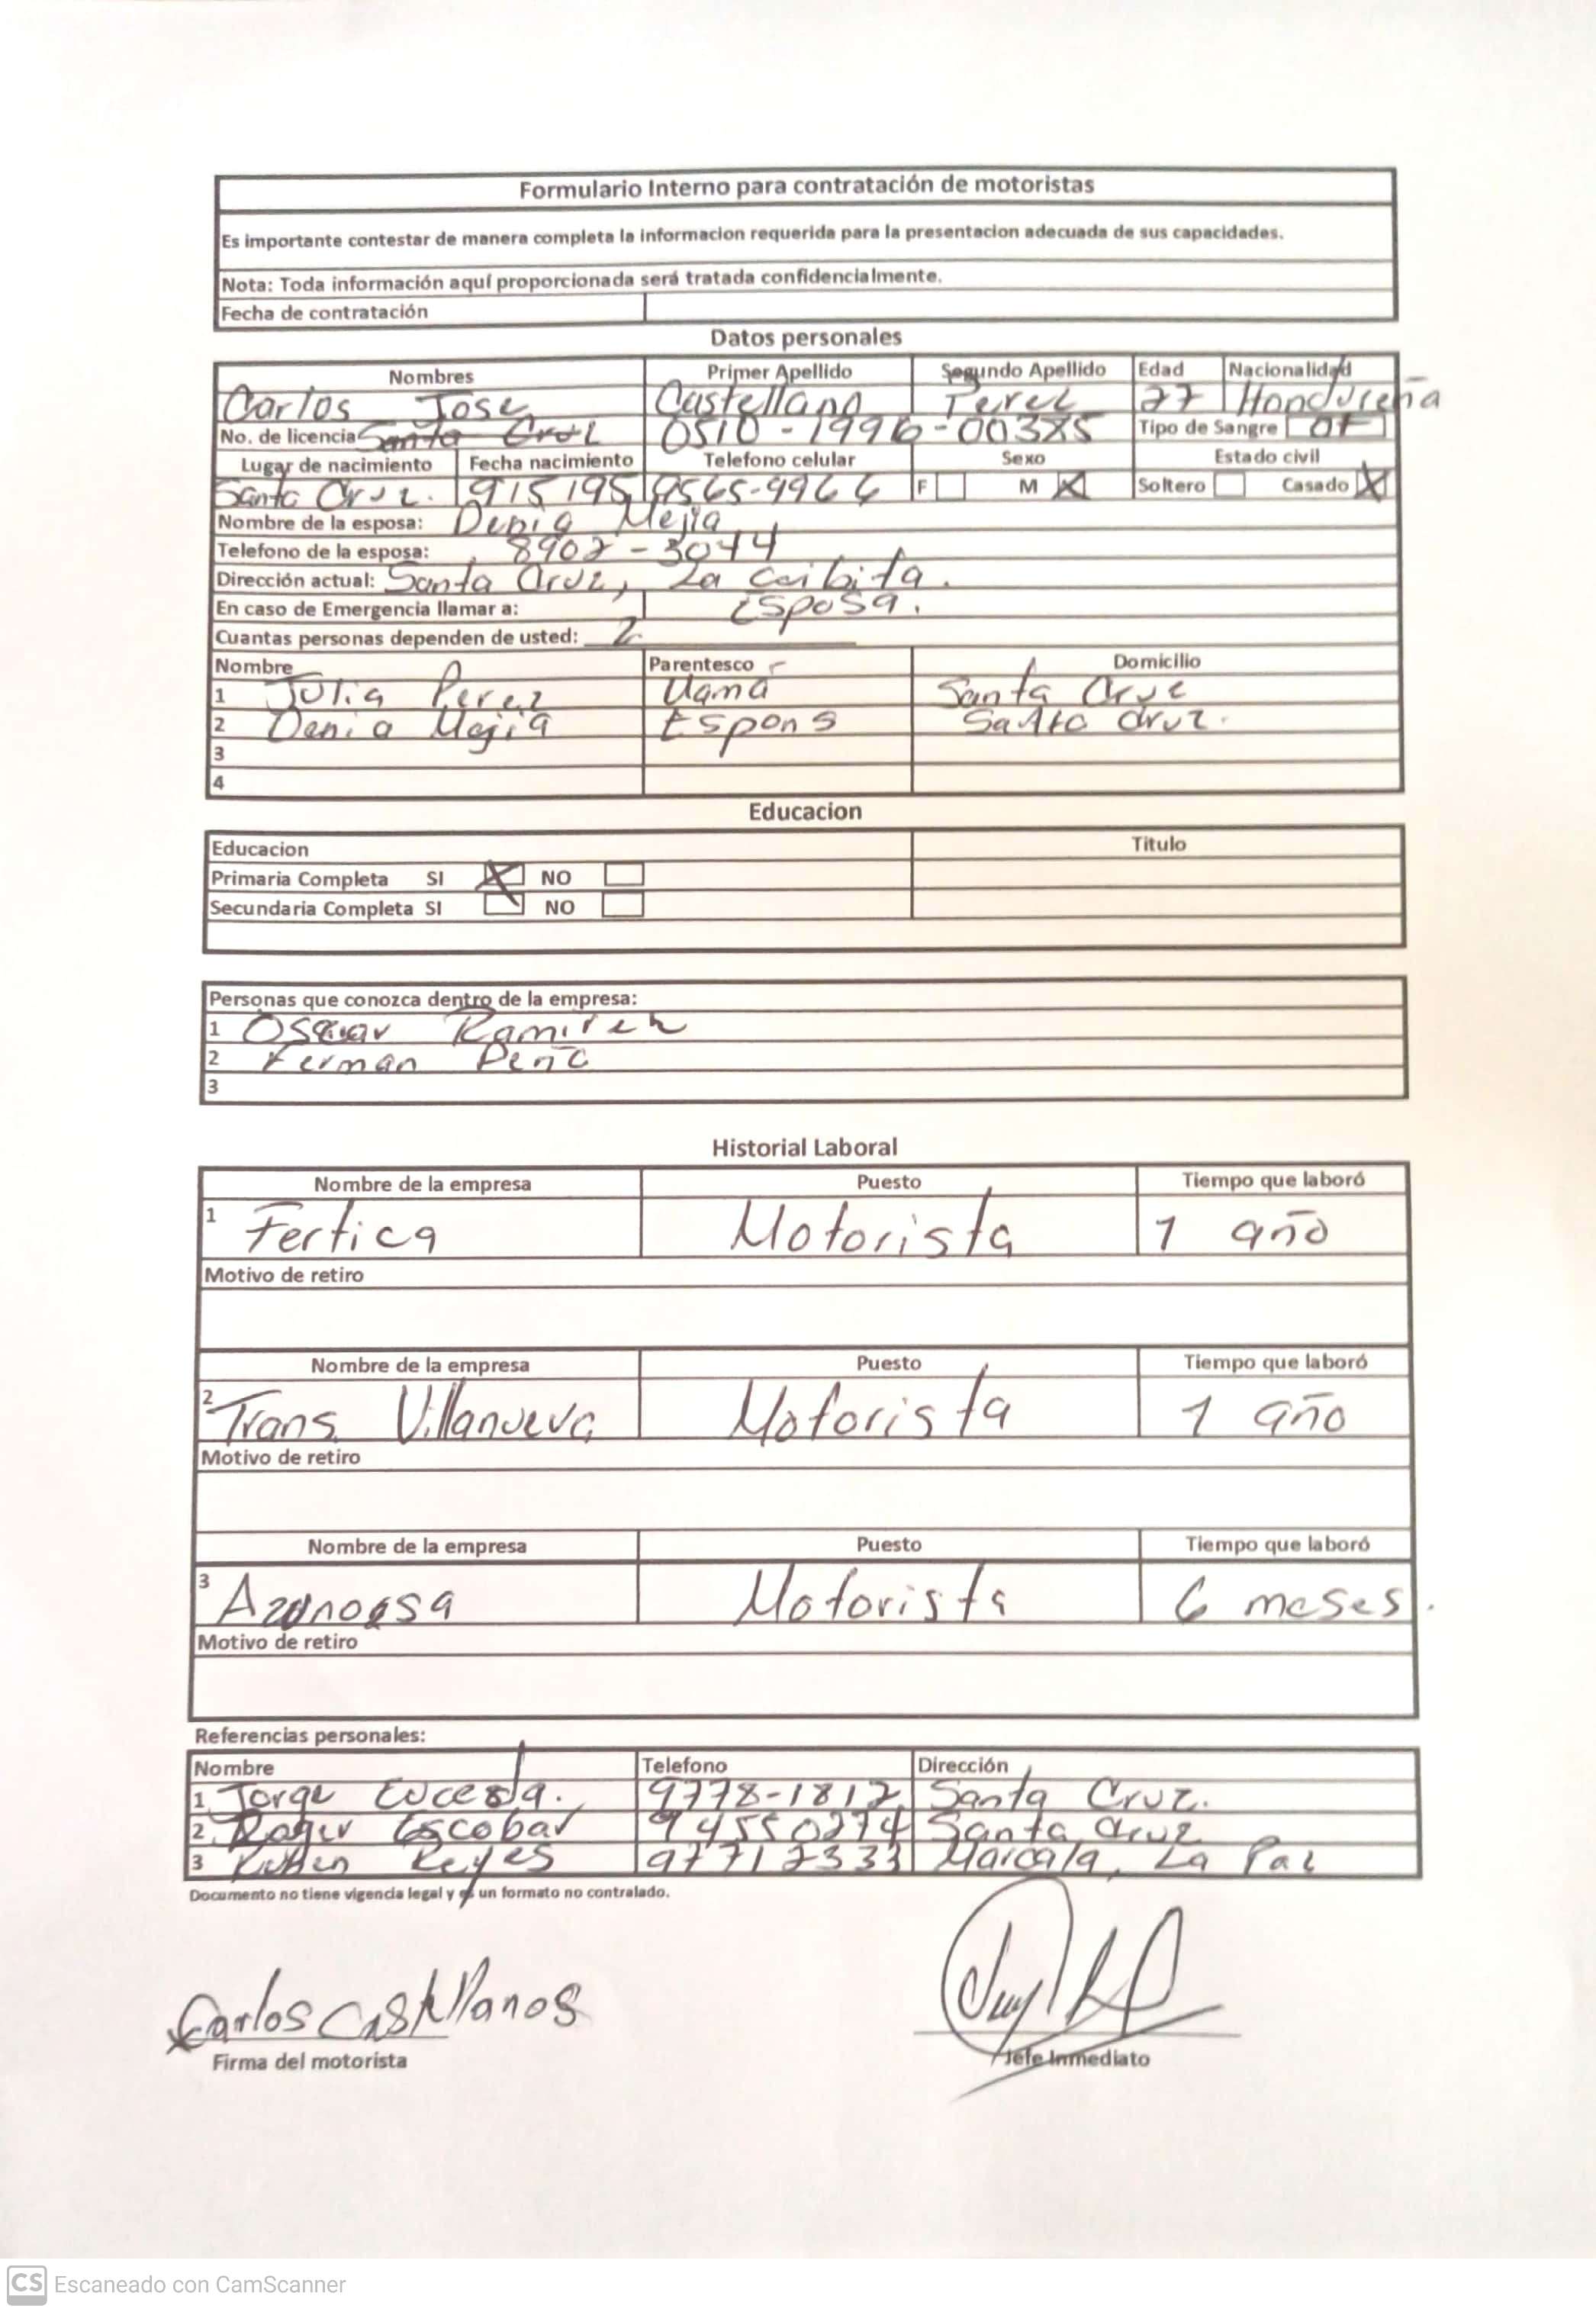 Formulario Interno para contratación de motoristas
Es importante contestar de manera completa la informacion requerida para la presentacion adecuada de sus capacidades.
Nota: Toda información aquí proporcionada será tratada confidencialmente.
Fecha de contratación
Datos personales
Nombres Primer Apellido Segundo Apellido Edad Nacionalidad
Carlos Jose Castellano Perez 27 Hondureña
No. de licencia Santa Cruz 0510-1996-00385 Tipo de Sangre O+
Lugar de nacimiento Fecha nacimiento Telefono celular Sexo Estado civil
Santa Cruz. F M X Soltero Casado X
Nombre de la esposa: Denia Mejia
Telefono de la esposa: 8902-3044
Dirección actual: Santa Cruz, La Ceibita.
En caso de Emergencia llamar a: Esposa.
Cuantas personas dependen de usted: 2
Nombre Parentesco Domicilio
1 Julia Perez Mamá Santa Cruz
2 Denia Mejia Santa Cruz.
3
4
Educacion
Educacion Titulo
Primaria Completa SI X NO
Secundaria Completa SI NO
Personas que conozca dentro de la empresa:
1 Oscar Ramirez
2 Ferman Peña
3
Historial Laboral
Nombre de la empresa Puesto Tiempo que laboró
1 Fertica Motorista 1 año
Motivo de retiro
Nombre de la empresa Puesto Tiempo que laboró
2 Trans. Villanueva Motorista 1 año
Motivo de retiro
Nombre de la empresa Puesto Tiempo que laboró
3 Motorista 6 meses.
Motivo de retiro
Referencias personales:
Nombre Telefono Dirección
1 Jorge Euceda. 9778-1812 Santa Cruz.
2 Roger Escobar 94550274 Santa Cruz
3 Ruben Reyes 97712333 Marcala, La Paz
Documento no tiene vigencia legal y es un formato no contralado.
Carlos Castellanos
Firma del motorista Jefe Inmediato
CS Escaneado con CamScanner